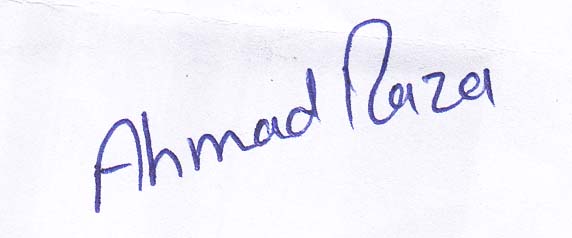 Ahmad Raza